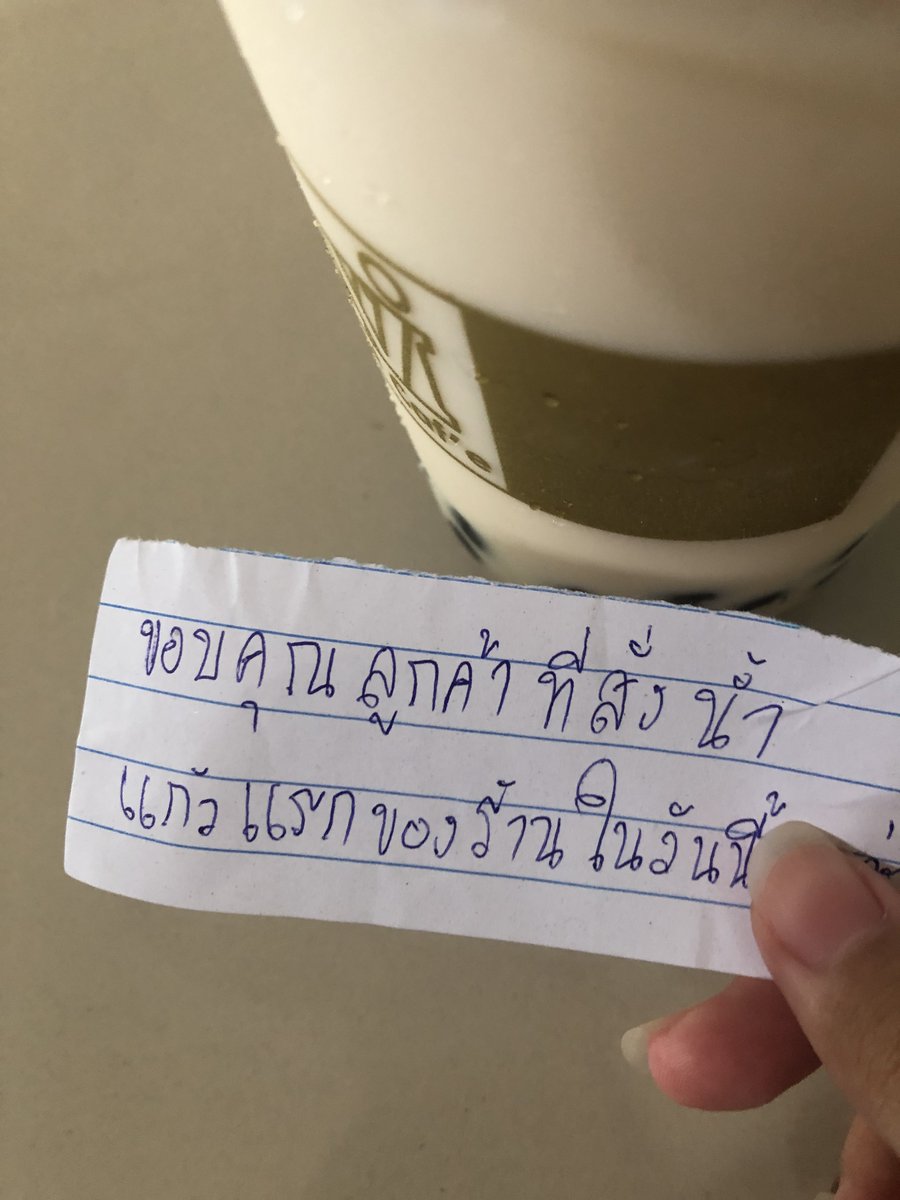 ขอบคุณ ลูกค้า ที่สั่ง น้ำ
แก้ว แรก ของ ร้าน ในวันนี้